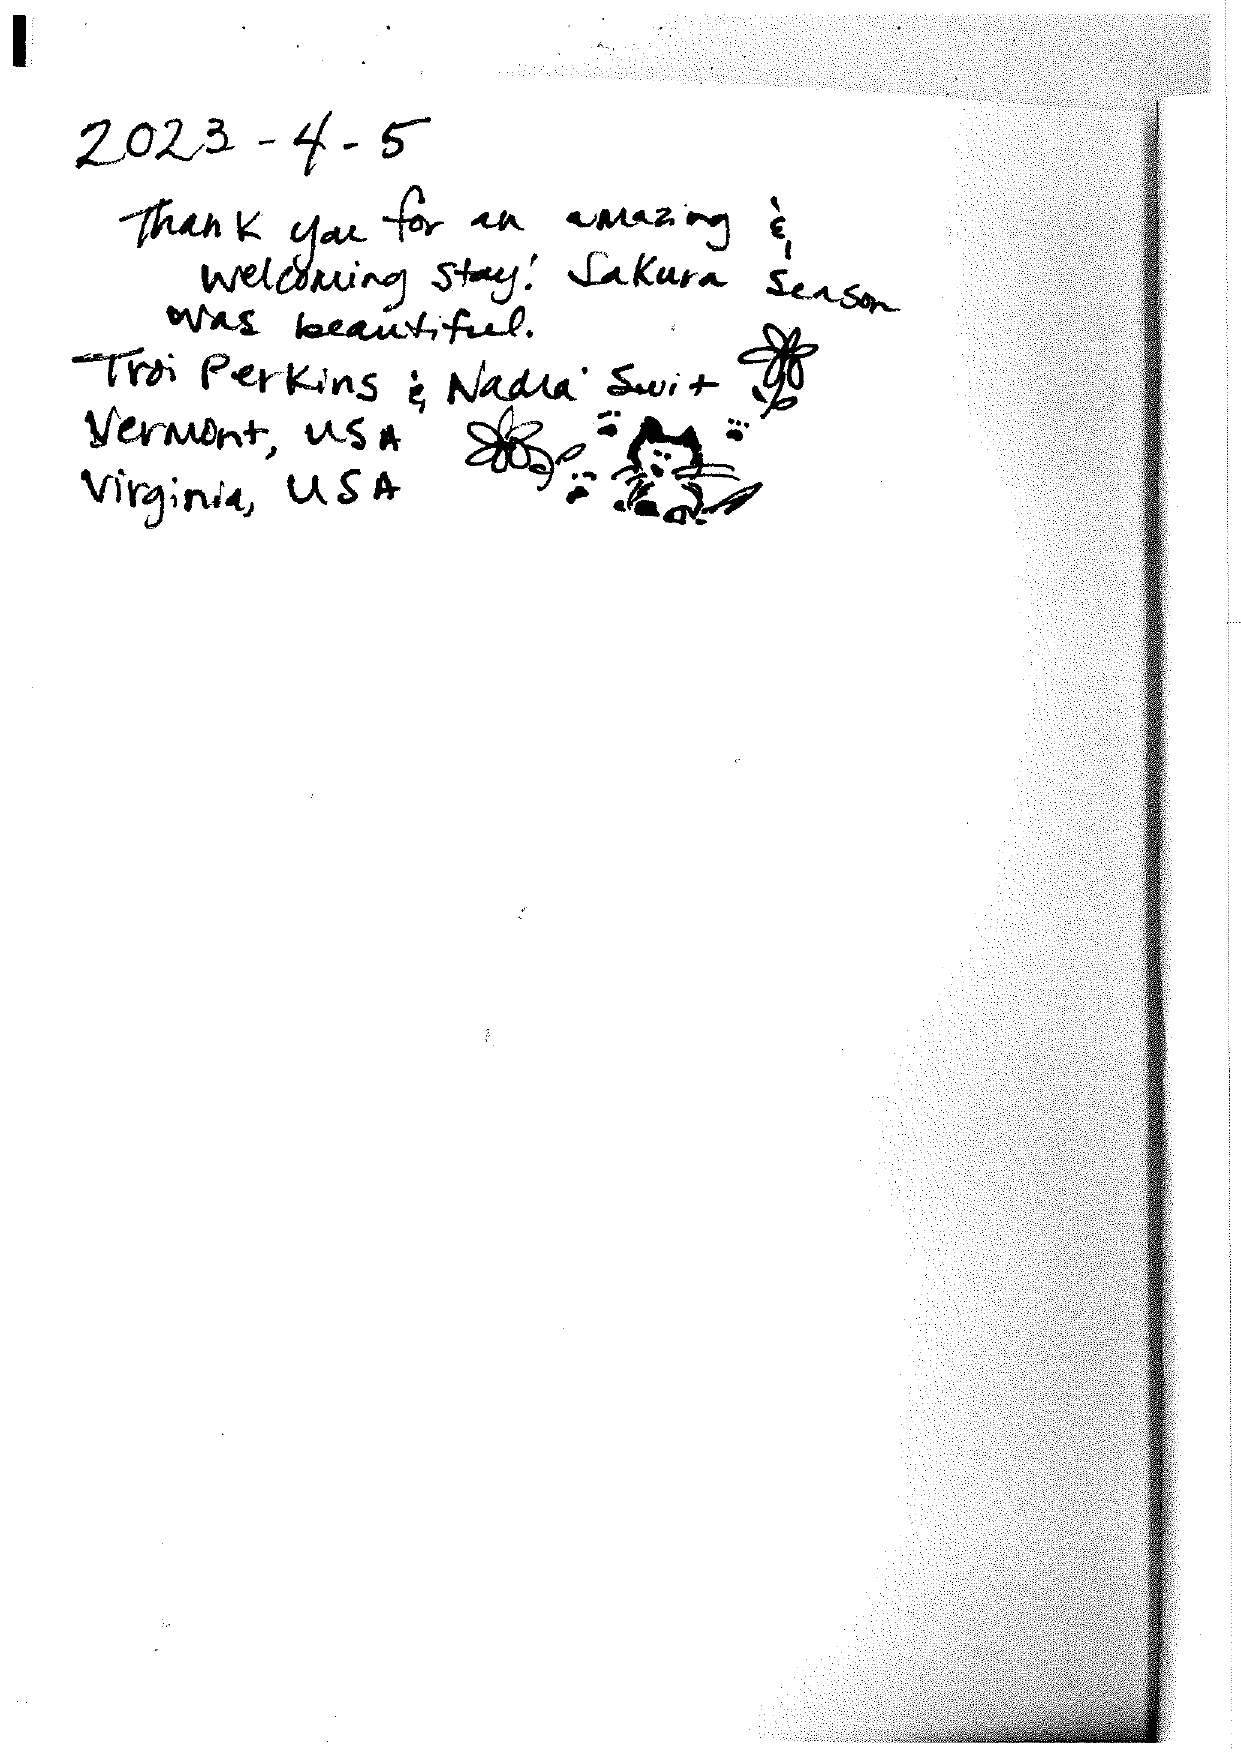 2023-4-5
Thank you for an amazing &
welcoming stay! Sakura Season
was beautiful.
Troi Perkins & Nadia Swit
Vermont, USA
Virginia, USA